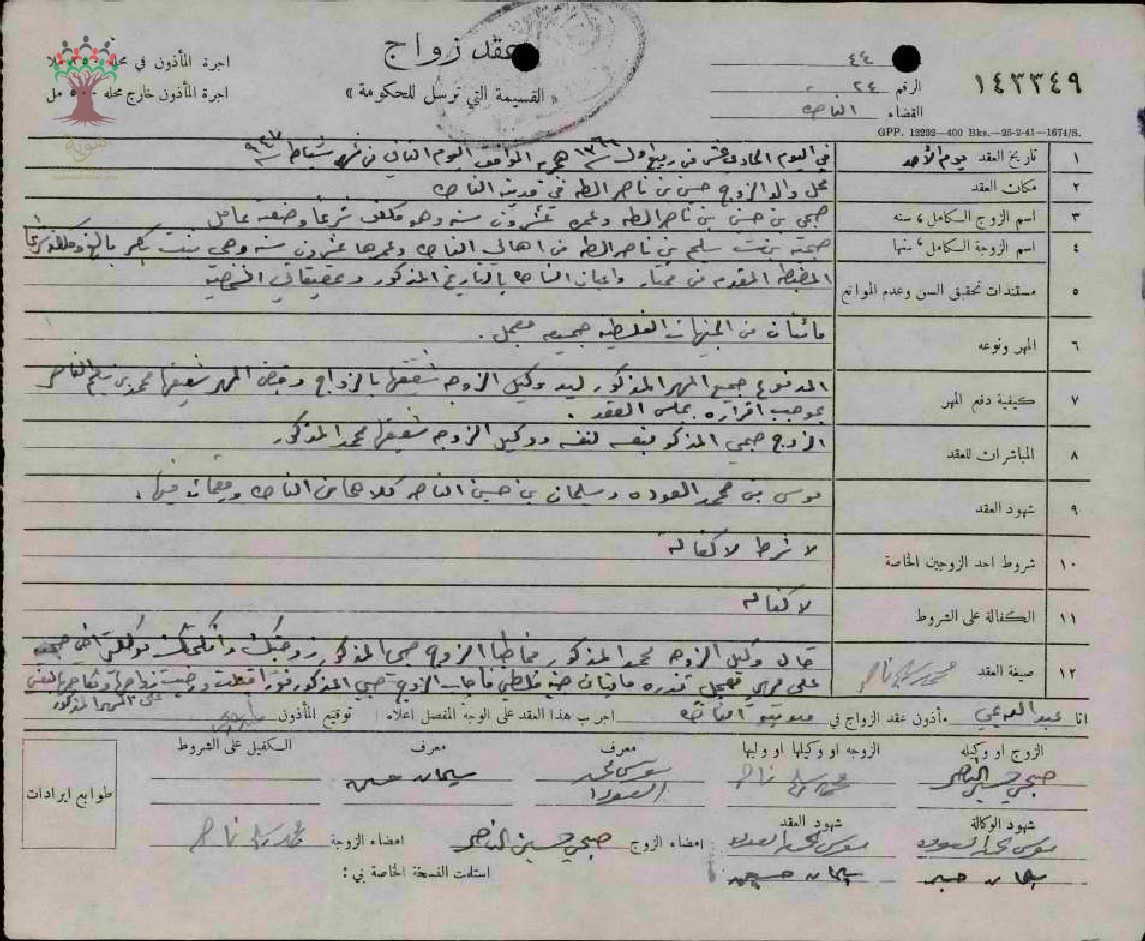 عقد زواج
« القسيمة التي ترسل للحكومة »
اجرة المأذون في محله
اجرة المأذون خارج محله ٥٠٠ مل
هوية
٤٤
الرقم ٢٤
القضاء الناصرة
١٤٣٣٤٩
GPP. 12292—400 Bks.—26-2-41—1674/S.
١ تاريخ العقد يوم الأحد في اليوم الحادي عشر من ربيع اول سنة ١٣٦٦ هجرية الموافق اليوم الثاني من شهر شباط سنة ٩٤٧
٢ مكان العقد محل والد الزوج حسن بن ناصر الطه في مدينة الناصرة
٣ اسم الزوج الكامل، سنه صبحي بن حسن بن ناصر الطه وعمره عشرون سنه وهو مكلف شرعا وصنعته عامل
٤ اسم الزوجة الكامل، سنها صبحية بنت سليم بن ناصر الطه من اهالي الناصره وعمرها عشرون سنه وهي بنت بكر بالغ
٥ مستندات تحقيق السن وعدم الموانع المضبطه المقدمه من مختار واعيان الناصرة بالتاريخ المذكور وتحقيقاتي الشخصية
٦ المهر ونوعه مائتان من الجنيهات الفلسطينيه جميعه معجل .
٧ كيفية دفع المهر المدفوع جميع المهر المذكور ليد وكيل الزوجه شقيقها بالزواج وقبض المهر شقيقها محمد بن سليم الناصر
بموجب اقراره بمجلس العقد .
٨ المباشران للعقد الزوج صبحي المذكور بنفسه لنفسه ووكيل الزوجه شقيقها محمد المذكور
٩ شهود العقد موسى بن محمد العوده وسليمان بن حسين الناصر كلاهما من الناصره ومقيمان فيها .
١٠ شروط احد الزوجين الخاصة لا شرط لا كفالة
١١ الكفالة على الشروط لا كفاله
١٢ صيغة العقد قال وكيل الزوجه محمد المذكور مخاطبا الزوج صبحي المذكور زوجتك وانكحتك موكلتي اختي صبحيه
على مهر معجل قدره مايتان جنيه فلسطيني فاجاب الزوج صبحي المذكور فورا قبلت ورضيت زواجها ونكاحها لنفسي
على المهر المذكور
انا مأذون عقد الزواج في اجريت هذا العقد على الوجه المفصل اعلاه توقيع المأذون
الزوج او وكيله
الزوجه او وكيلها او وليها
معرف
معرف
الكفيل على الشروط
صبحي حسين الناصر
موسى محمد العودة
سليمان حسين
طوابع ايرادات
شهود الوكالة
شهود العقد
موسى محمد العوده
موسى محمد العوده
امضاء الزوج صبحي حسين الناصر
امضاء الزوجة
سليمان حسين
سليمان حسين
استلمت النسخة الخاصة بي :